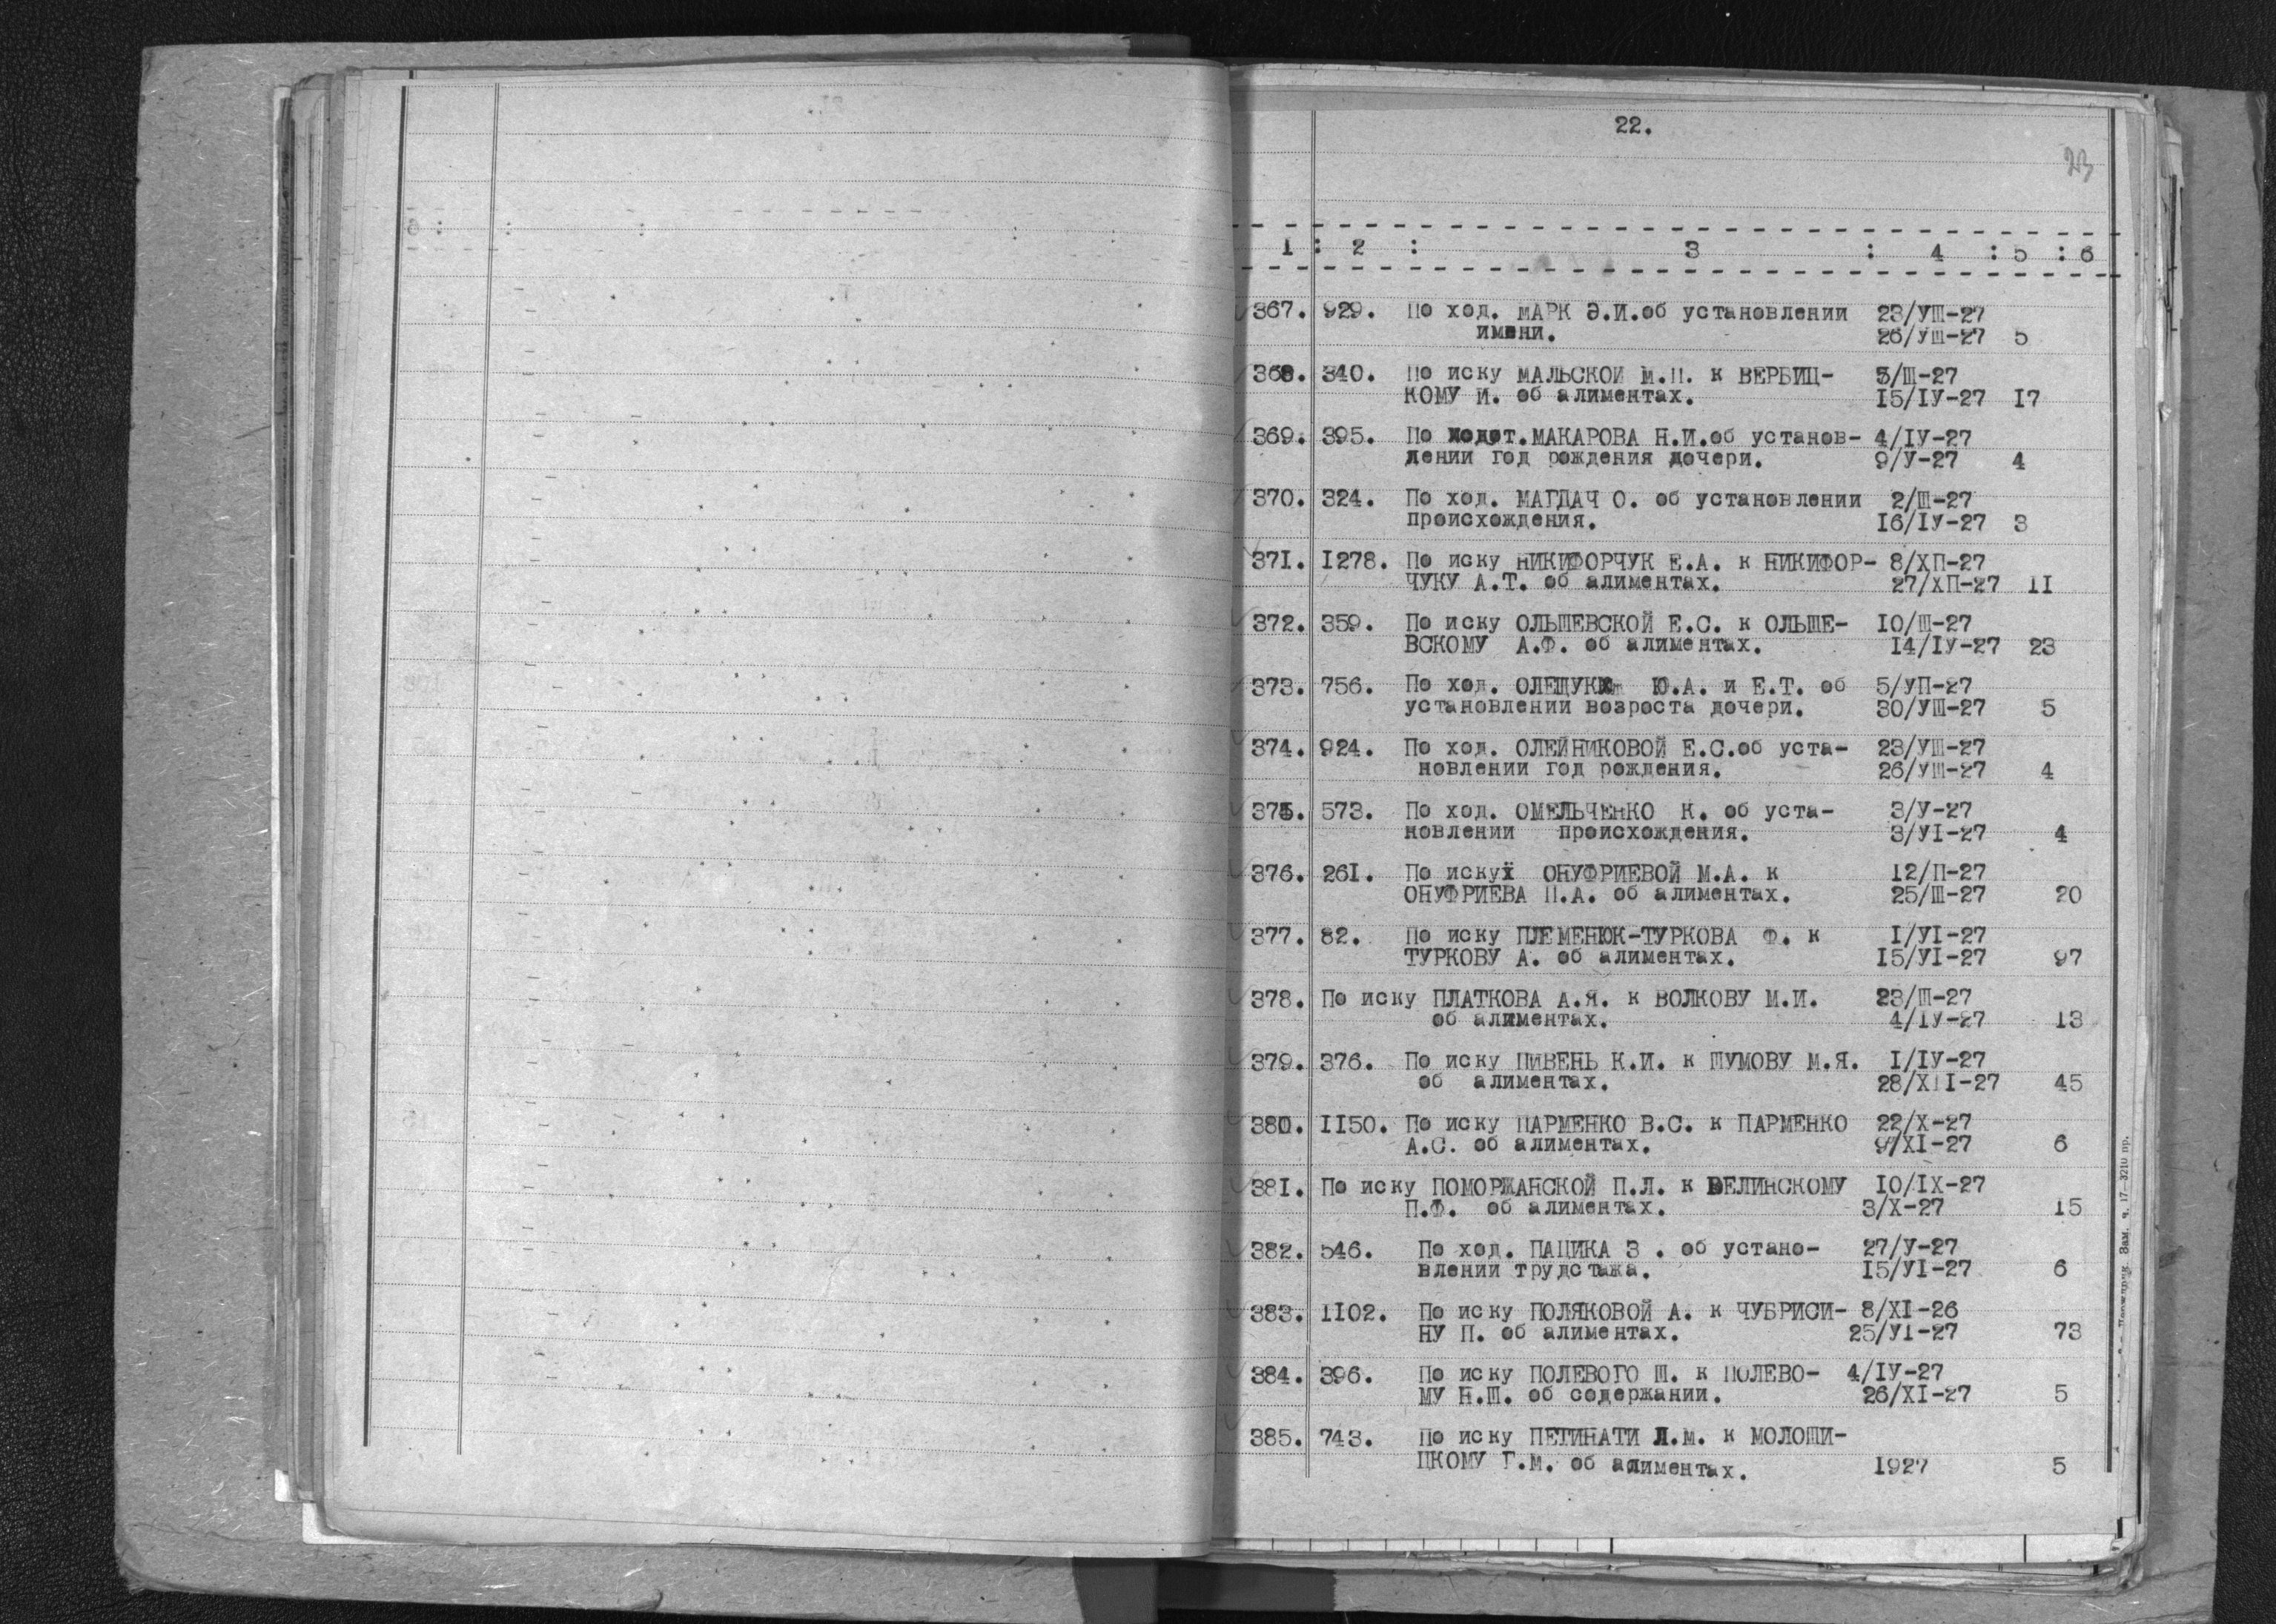 22.
23
1 : 2 : 3 : 4 : 5 : 6
367. 929. По ход. МАРК Э.И.об установлении 23/УШ-27
имени. 26/УШ-27 5
368. 340. По иску МАЛЬСКОЙ М.П. к ВЕРБИЦ- 5/Ш-27
КОМУ И. об алиментах. 15/IУ-27 17
369. 395. По ходот.МАКАРОВА Н.И.об установ- 4/IУ-27
лении год рождения дочери. 9/У-27 4
370. 324. По ход. МАГДАЧ О. об установлении 2/Ш-27
происхождения. 16/IУ-27 3
371. 1278. По иску НИКИФОРЧУК Е.А. к НИКИФОР- 8/ХП-27
ЧУКУ А.Т. об алиментах. 27/ХП-27 11
372. 359. По иску ОЛЬШЕВСКОЙ Е.С. к ОЛЬШЕ- 10/Ш-27
ВСКОМУ А.Ф. об алиментах. 14/IУ-27 23
373. 756. По ход. ОЛЕЩУК Ю.А. и Е.Т. об 5/УП-27
установлении возроста дочери. 30/УШ-27 5
374. 924. По ход. ОЛЕЙНИКОВОЙ Е.С.об уста- 23/УШ-27
новлении год рождения. 26/УШ-27 4
375. 573. По ход. ОМЕЛЬЧЕНКО К. об уста- 3/У-27
новлении происхождения. 3/УI-27 4
376. 261. По иску ОНУФРИЕВОЙ М.А. к 12/П-27
ОНУФРИЕВА П.А. об алиментах. 25/Ш-27 20
377. 82. По иску ПЛЕМЕНЮК-ТУРКОВА Ф. к 1/УI-27
ТУРКОВУ А. об алиментах. 15/УI-27 97
378. По иску ПЛАТКОВА А.Я. к ВОЛКОВУ М.И. 23/Ш-27
об алиментах. 4/IУ-27 13
379. 376. По иску ПИВЕНЬ К.И. к ШУМОВУ М.Я. 1/IУ-27
об алиментах. 28/ХII-27 45
380. 1150. По иску ПАРМЕНКО В.С. к ПАРМЕНКО 22/Х-27
А.С. об алиментах. 9/ХI-27 6
381. По иску ПОМОРЖАНСКОЙ П.Л. к ВЕЛИНСКОМУ 10/IХ-27
П.Ф. об алиментах. 3/Х-27 15
382. 546. По ход. ПАЦИКА З . об устано- 27/У-27
влении трудстажа. 15/УI-27 6
383. 1102. По иску ПОЛЯКОВОЙ А. к ЧУБРИСИ- 8/ХI-26
НУ П. об алиментах. 25/УI-27 73
384. 396. По иску ПОЛЕВОГО Ш. к ПОЛЕВО- 4/IУ-27
МУ Н.Ш. об содержании. 26/ХI-27 5
385. 743. По иску ПЕТИНАТИ Л.М. к МОЛОШИ-
ЦКОМУ Г.М. об алиментах. 1927 5
Зам. ч. 17—3210 пр.